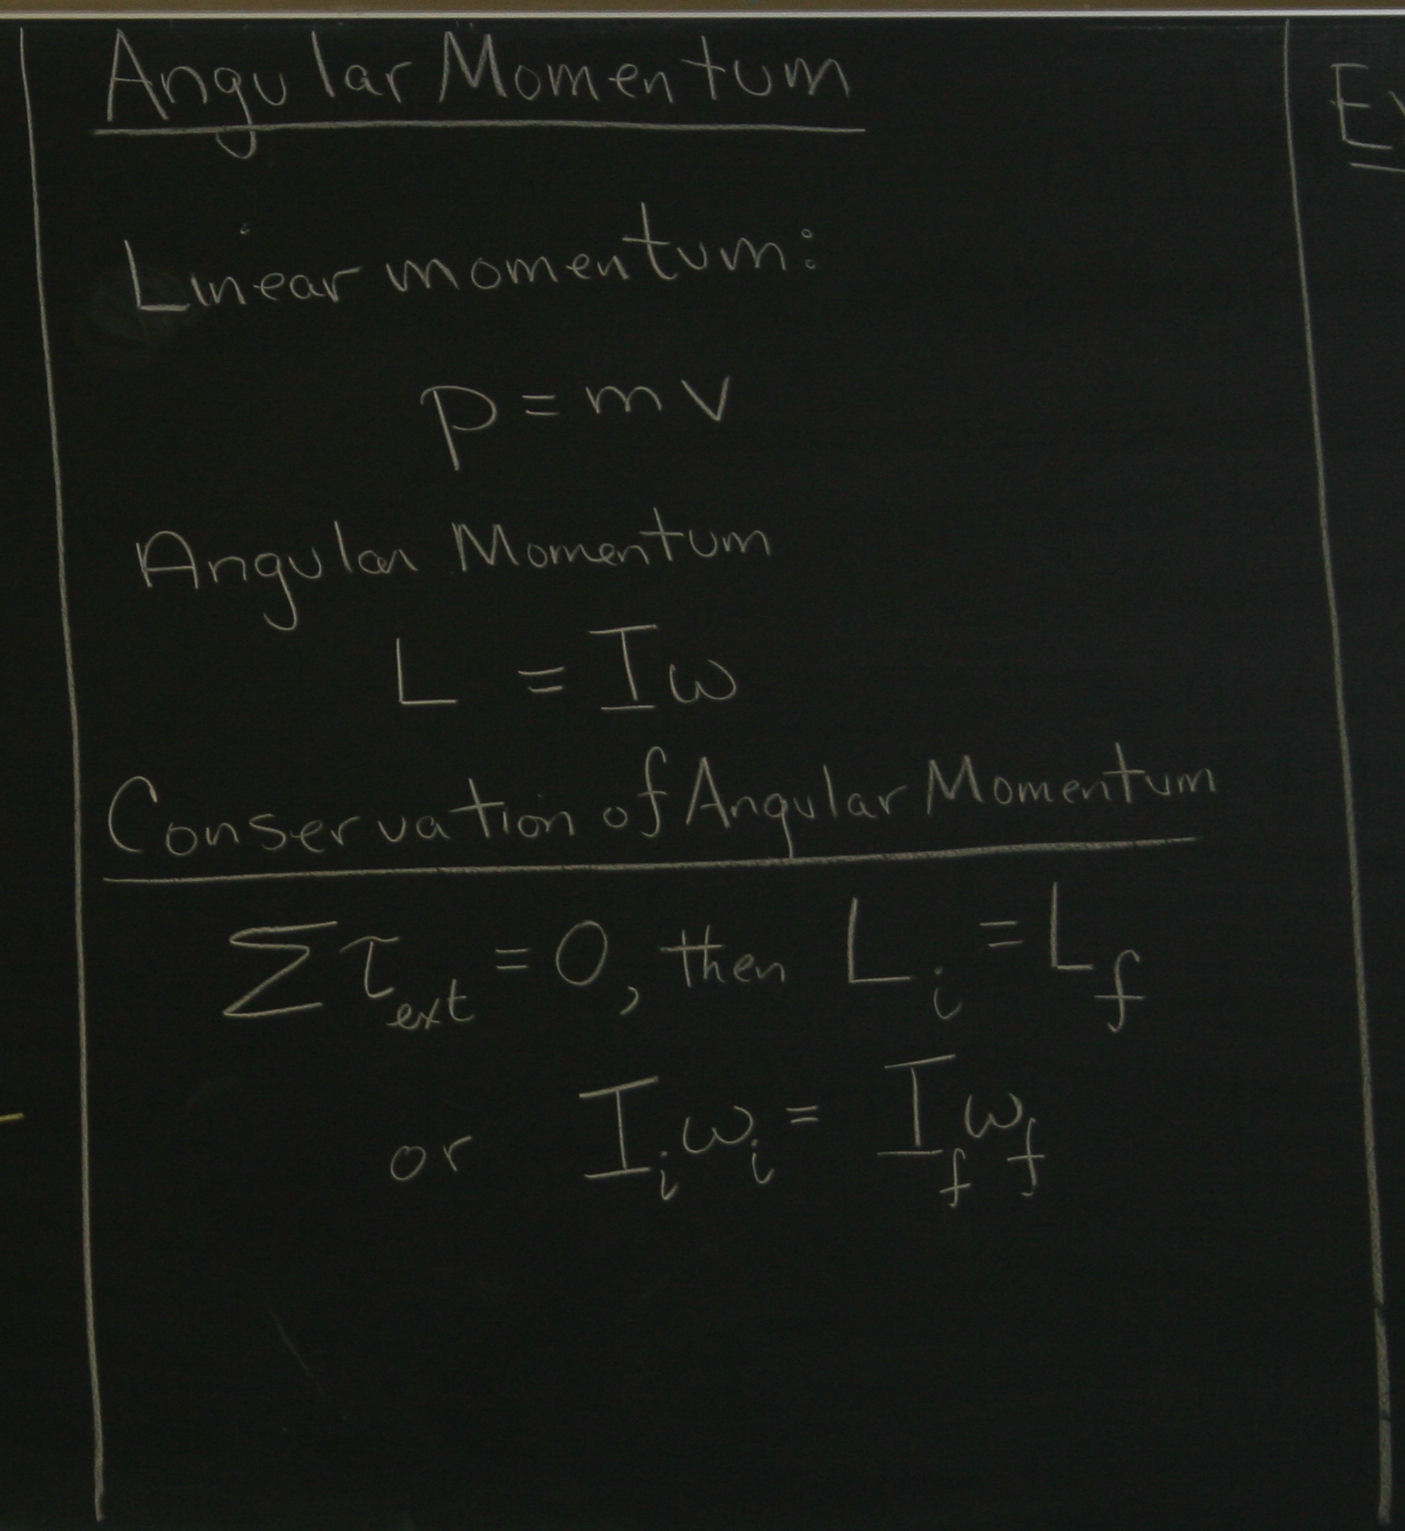 Angular Momentum
Linear momentum:
p = mv
Angular Momentum
L = Iω
Conservation of Angular Momentum
Στ_ext = 0, then L_i = L_f
or I_i ω_i = I_f ω_f